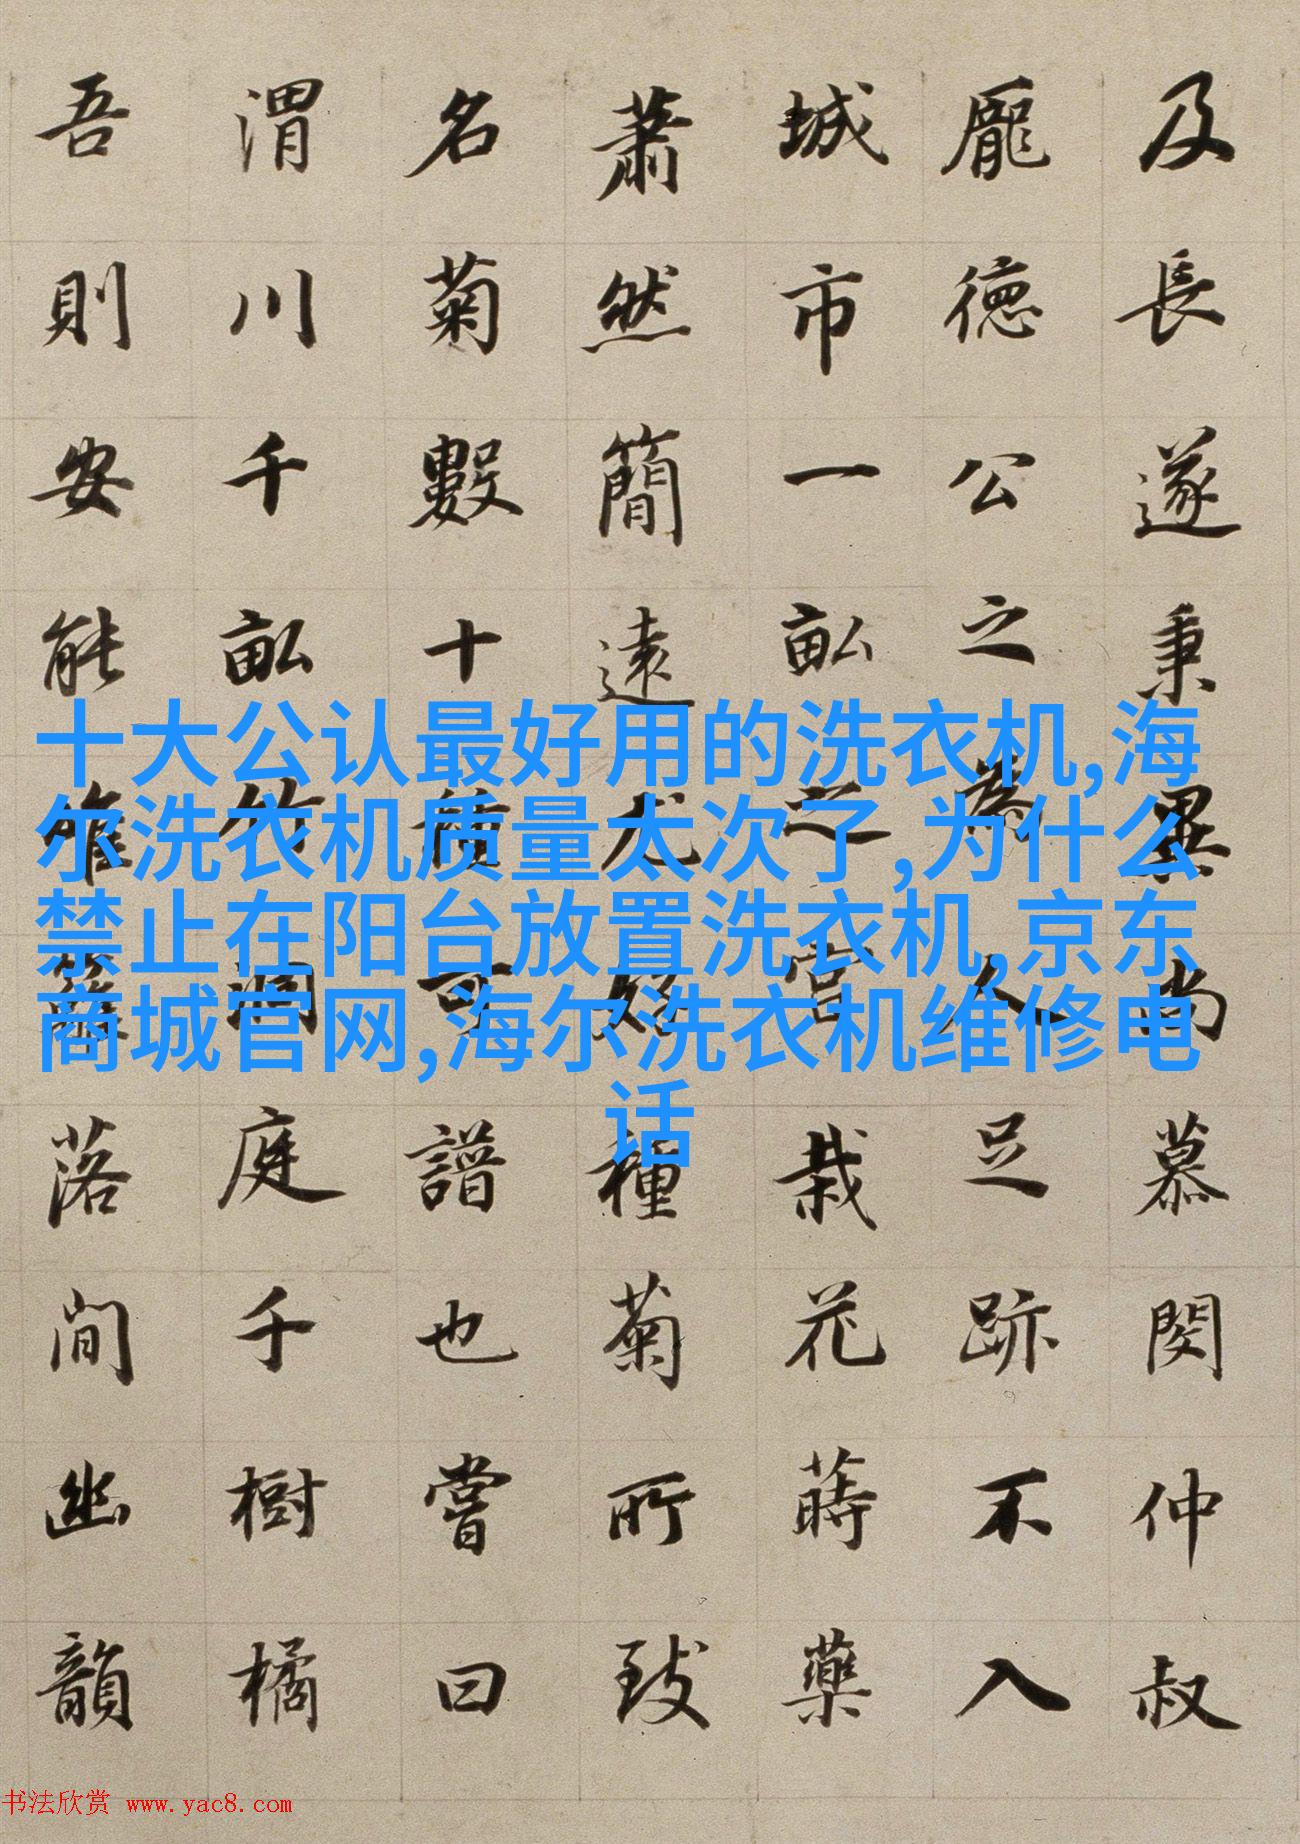 及長遂秉異尚慕閔仲叔
龐德公之為人足跡不入
城市一畝之宮栽花蒔藥
蕭然簡遠尤好種菊所致
名菊數十種可譜也嘗曰
渭川千畝竹洞庭千樹橘
吾則安能唯籬落間幽韻
十大公认最好用的洗衣机,海
尔洗衣机质量太次了,为什么
禁止在阳台放置洗衣机,京东
商城官网,海尔洗衣机维修电
话
书法欣赏 www.yac8.com